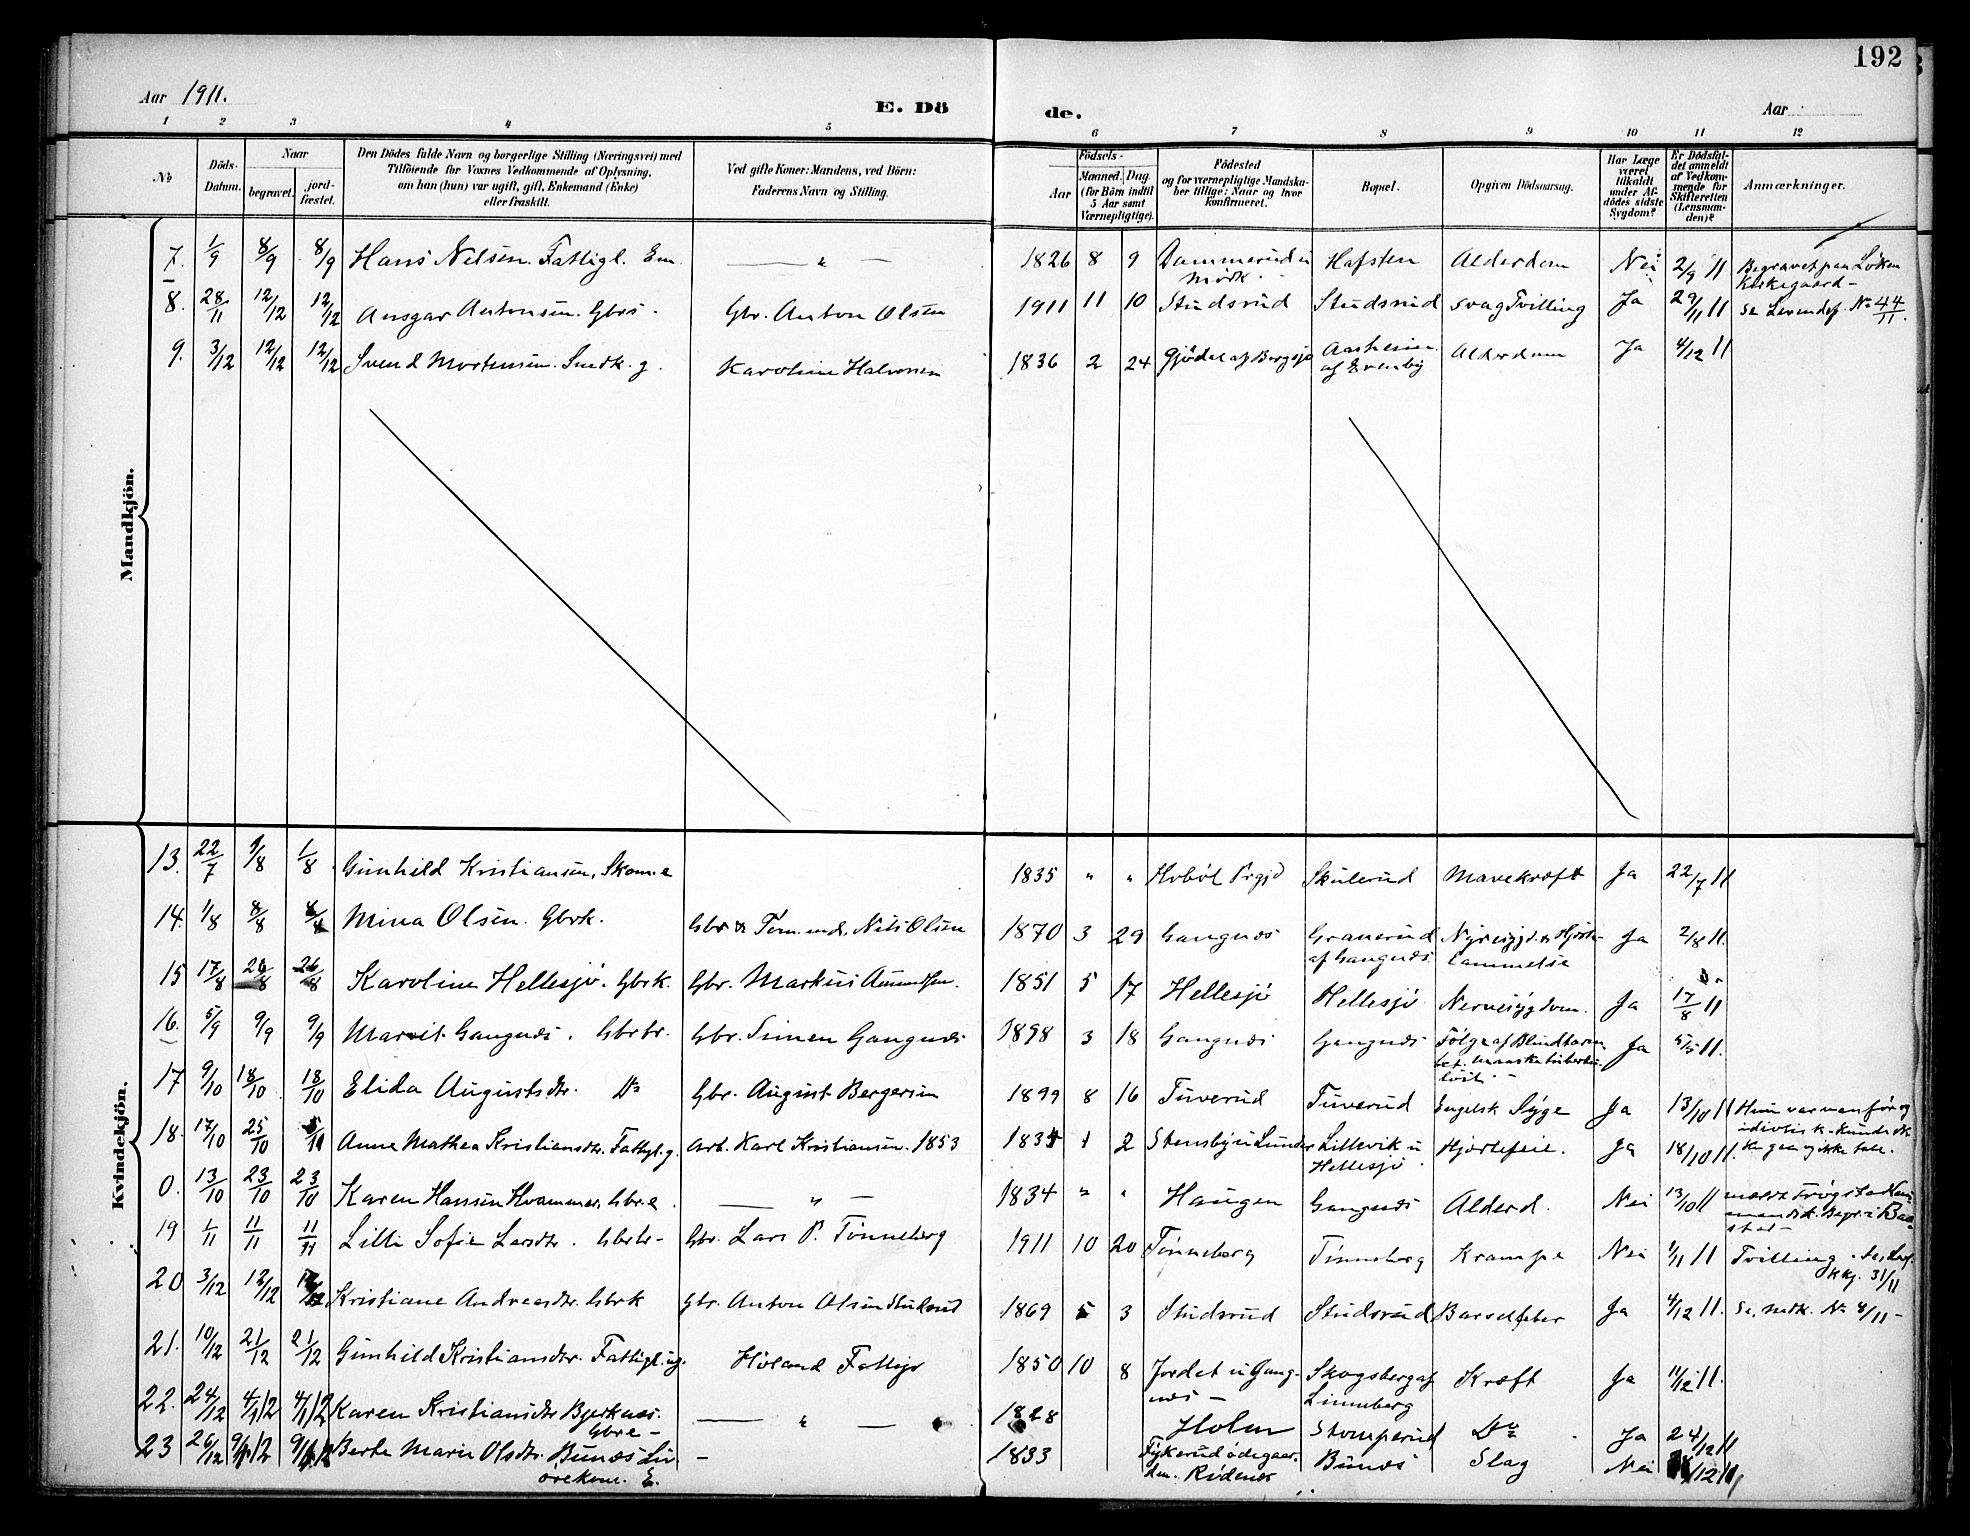 192
Aar 1911.
E. Dö
de.
Aar
1 2 3 4 5 6 7 8 9 10 11 12
№
Döds-Datum.
Naar
begravet.
jord-fæstet.
Den Dödes fulde Navn og borgerlige Stilling (Næringsvei) med
Tilföiende for Voxnes Vedkommende af Oplysning,
om han (hun) var ugift, gift, Enkemand (Enke)
eller fraskilt.
Ved gifte Koner: Mandens, ved Börn:
Faderens Navn og Stilling.
Födsels-
Aar
Maaned. Dag.
(for Börn indtil
5 Aar samt
Værnepligtige).
Födested
og for værnepligtige Mandska-
ber tillige: Naar og hvor
Konfirmeret.
Bopæl.
Opgiven Dödsaarsag.
Har Læge
været
tilkaldt
under Af-
dödes sidste
Sygdom?
Er Dödsfal-
det anmeldt
af Vedkom-
mende for
Skifteretten
(Lensman-
den)?
Anmærkninger.
Mandkjön.
7. 1/9 8/9 8/9 Hans Nelsen. Fattigl. Em. — " — 1826 8 9 Dammerud i Hafsten Alderdom Nei 2/9 11 Begravet paa Löken
Mörk. Kirkegaard –
8. 28/11 12/12 12/12 Ansgar Antonsen. Gbrs. Gbr. Anton Olsen 1911 11 10 Studsrud Studsrud Svag Tvilling Ja 29/11 11 Se Levendef. No 44/11.
9. 3/12 12/12 12/12 Svend Mortensen. Smdk. g. Karoline Halvorsen 1836 2 24 Gjödet af Bergsjö Aasheim Alderdom Ja 4/12 11
Kvindekjön.
13. 22/7 1/8 1/8 Gunhild Kristiansen, Skom.e 1835 " " Hoböl Prgjd Skulerud Mavekræft Ja 22/7 11
14. 1/8 8/8 8/8 Mina Olsen. Gbrk. Gbr & Töm.md. Nils Olsen 1870 3 29 Gangnæs Granerud Ja 2/8 11.
af Gangnæs. Lammelse
15 17/8 26/8 26/8 Karoline Hellesjö. Gbrk. Gbr. Markus Amundsen. 1851 5 17 Hellesjö Hellesjö Nervesygdom. Ja 17/8 11
16. 5/9 9/9 9/9 Marit Gangnæs. Gbrbr. Gbr. Simen Gangnæs 1898 3 18 Gangnæs Gangnæs Fölge af Blindtarm Ja 11.
17 9/10 18/10 18/10 Elida Augustsdtr. Do Gbr. August Bergersen 1899 8 16 Tuverud Tuverud Engelsk Syge Ja 13/10 11 Hun var vanför og
18. 17/10 25/10 Anne Mathea Kristiansdtr. Fattigl. g. Arb. Karl Kristiansen. 1853 2 Stensby i Lillevik u Hjertefeil. Ja 18/10 11.
Hellesjö.
0. 13/10 23/10 23/10 Karen Hansen Hvammer, Gbr.e — " — 1834 " " Haugen Gangnæs Alderd. Nei 13/10 11
19 1/11 11/11 11/11 Lilli Sofie Larsdtr. Gbrbr- Gbr. Lars P. Tönneberg 1911 10 20 Tönneberg Tönneberg Krampe Nei 1/11 11 Tvilling.
kkj. 31/11
20 3/12 12/12 12/12 Kristiane Andreasdtr. Gbrk Gbr. Anton Olsen Studsrud 1869 5 3 Studsrud Studsrud Barselfeber Ja 4/12 11. Se, mdk. No 8/11 –
21. 10/12 21/12 21/12 Gunhild Kristiansdtr. Fattigl. ug. Höland Fattigv 1850 10 8 Jordet u Gang- Skogsberg af Kræft Ja 11/12 11.
næs – Linneberg
22. 24/12 4/1 12 4/1 12 Karen Kristiansdtr Bjerknæs. — " — 1828 Holm Stomperud Do Ja 24/12 11
Gbre –
23 26/12 9/1 12 9/1 12 Berte Marie Olsdtr. Bunæs – 1833 Fykerud ödegaar- Bunæs Slag Nei /12 11
den. Rödenæs
E.